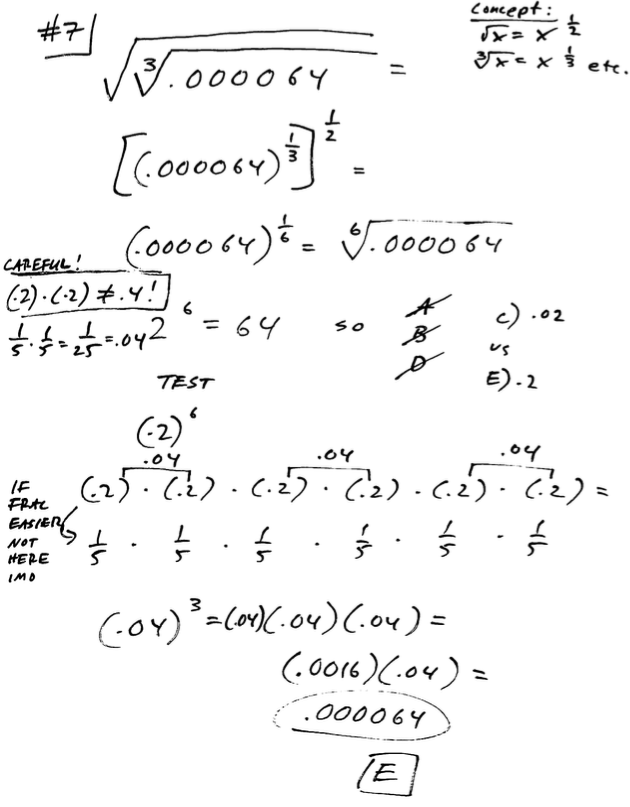 #7
Concept:
√x = x^(1/2)
∛x = x^(1/3) etc.
√(∛.000064) =
[(.000064)^(1/3)]^(1/2) =
(.000064)^(1/6) = ⁶√.000064
CAREFUL!
(.2)·(.2) ≠ .4!
1/5 · 1/5 = 1/25 = .04
2^6 = 64 so
A
B
D
C) .02
vs
E) .2
TEST
(.2)^6
.04 .04 .04
(.2) · (.2) · (.2) · (.2) · (.2) · (.2) =
IF
FRAC
EASIER
NOT
HERE
IMO
1/5 · 1/5 · 1/5 · 1/5 · 1/5 · 1/5
(.04)^3 = (.04)(.04)(.04) =
(.0016)(.04) =
.000064
E